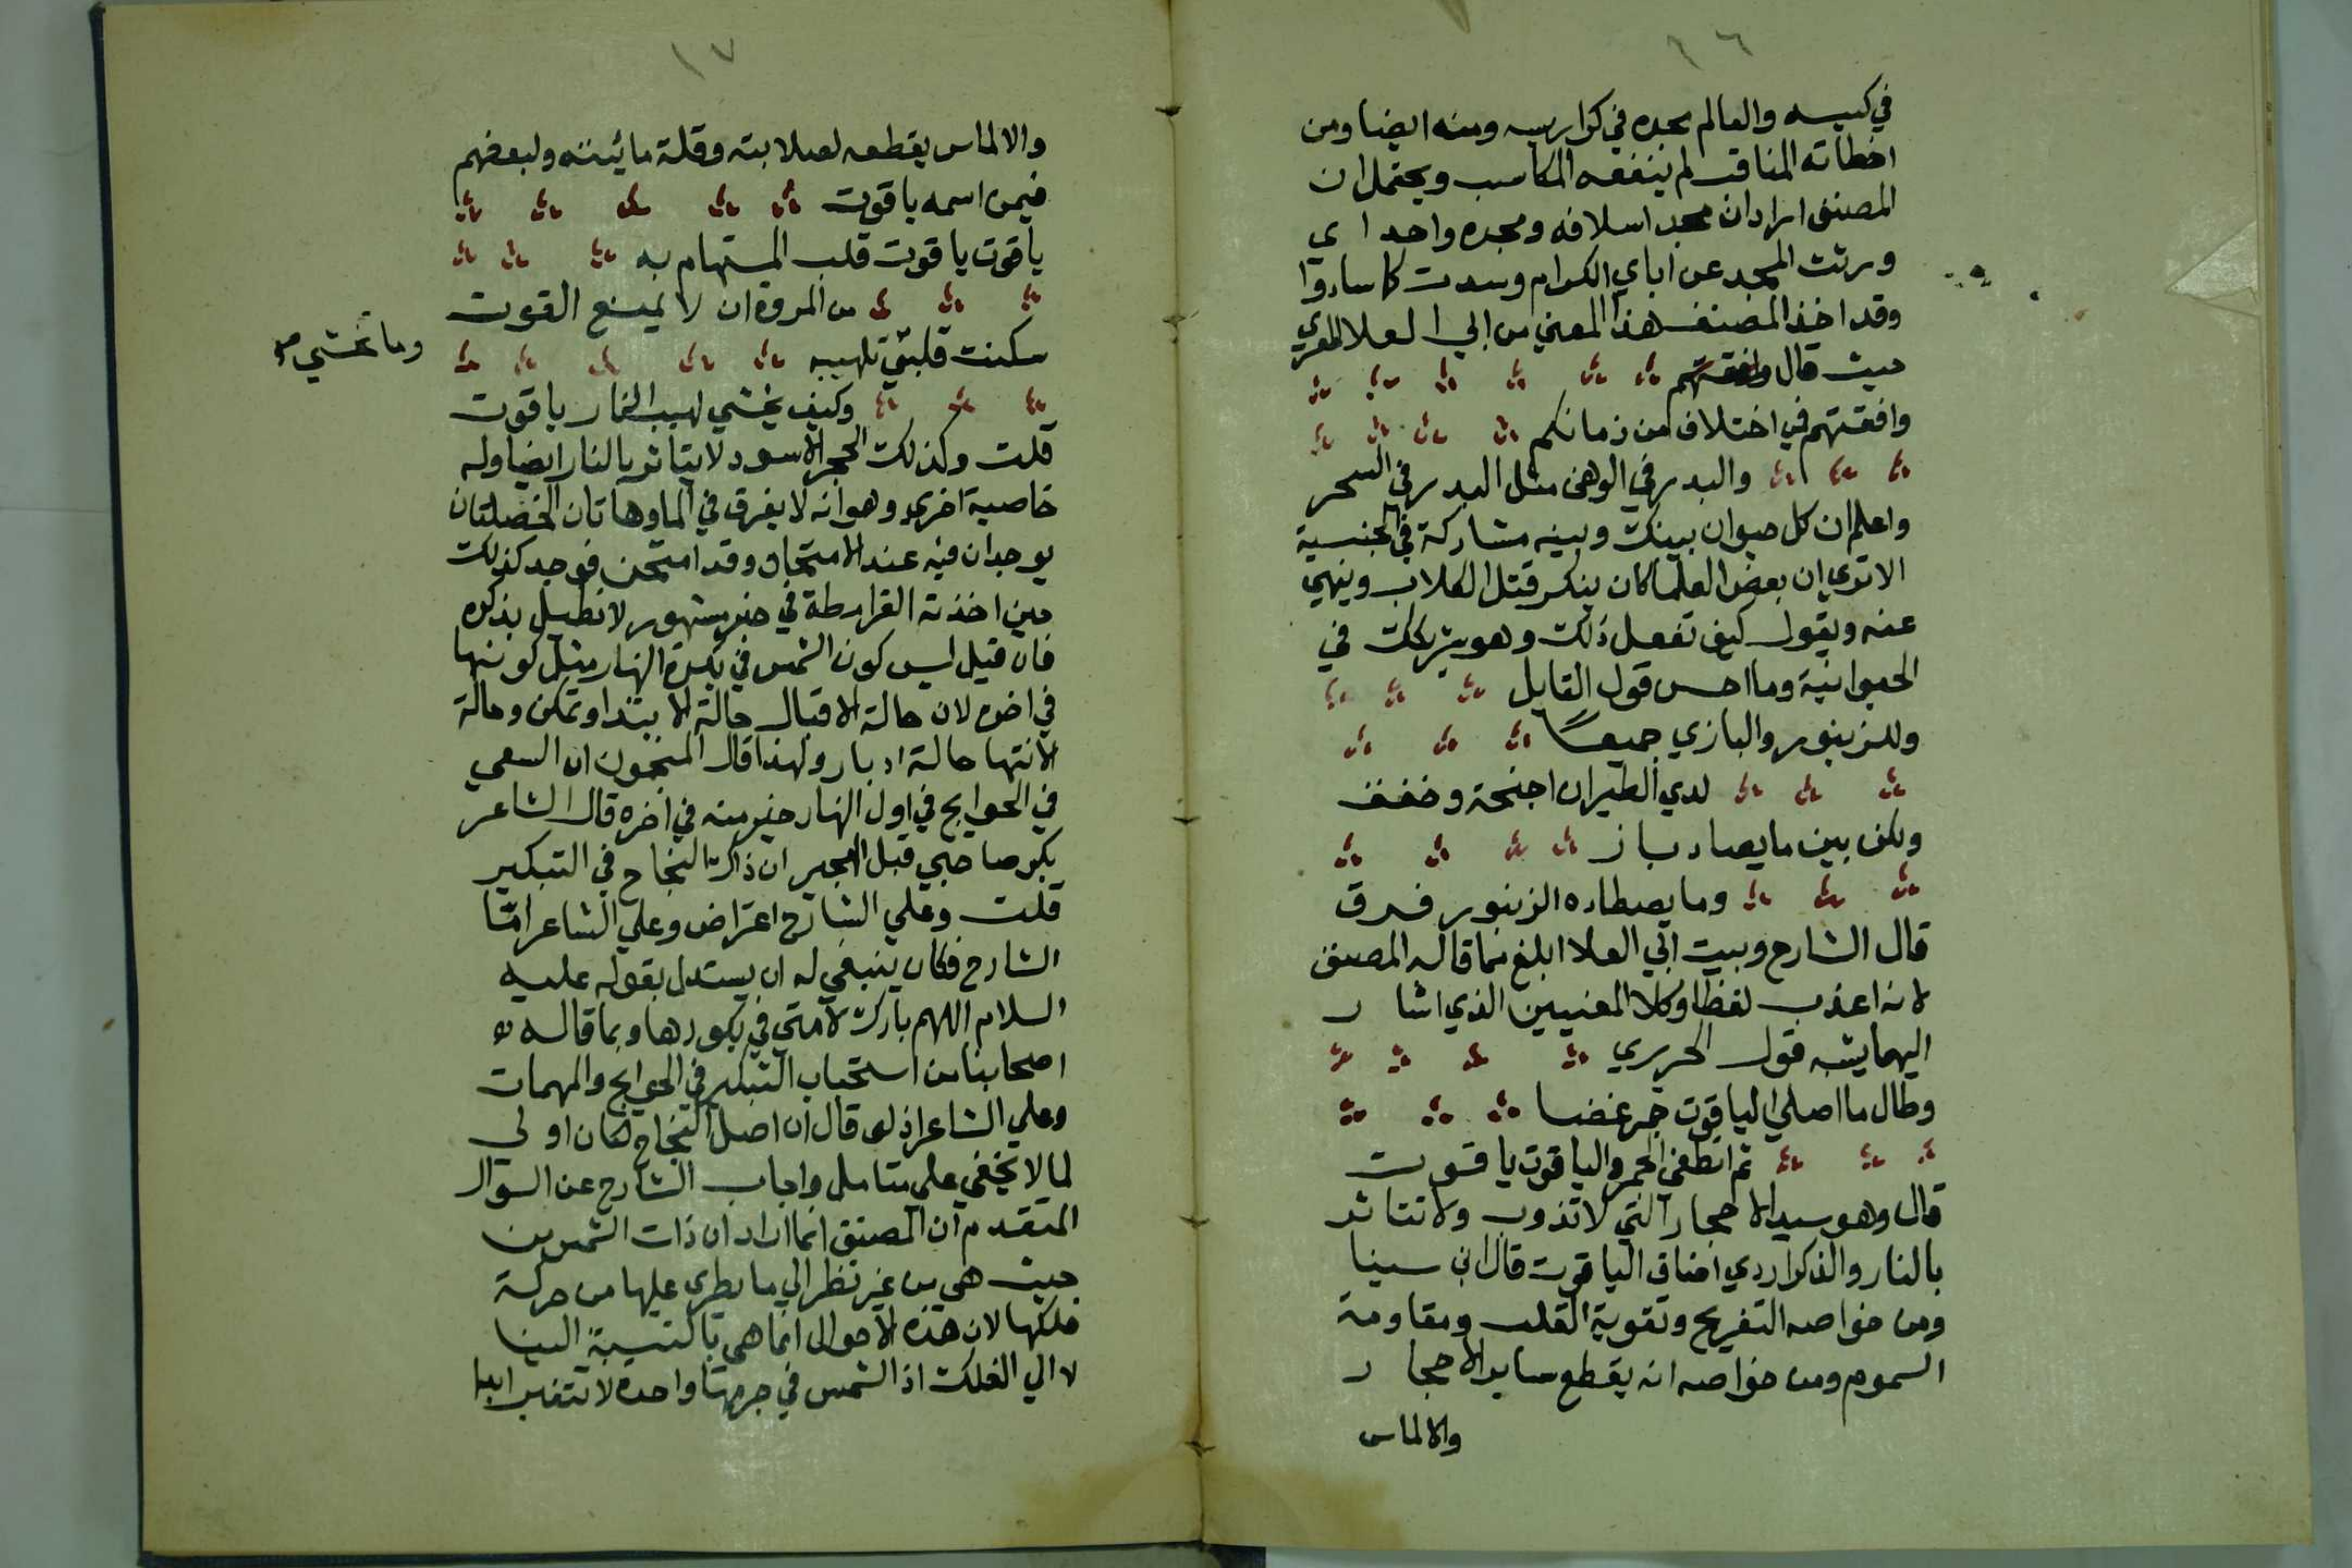 ١٦
في كيسه والعالم مجده في كراريسه ومنه ايضا ومن
اخطاته المناقب لم ينفعه المكاسب ويحتمل ان
المصنف اراد ان مجد اسلافه ومجده واحد اي
ورثت المجد عن اباي الكرام وسدت كما سادوا
وقد اخذ المصنف هذا المعني من ابي العلا المعري
حيث قال
وافقتهم في اختلاف من زمانكم
والبدر في الوهن مثل البدر في السحر
واعلم ان كل حيوان بينك وبينه مشاركة في الجنسية
الا تري ان بعض العلما كان ينكر قتل الكلاب وينهي
عنه ويقول كيف تفعل ذلك وهو يشركك في
الحيوانية وما احسن قول القايل
وللزنبور والبازي جميعًا
لدي الطيران اجنحة وخفف
ولكن بين ما يصاد باز
وما يصطاده الزنبور فرق
قال الشارح وبيت ابي العلا ابلغ مما قاله المصنف
لانه اعذب لفظا وكلا المعنيين الذي اشار
اليهما يشبه قول الحريري
وطال ما اصلي الياقوت جمر غضا
ثم انطفي الجمر والياقوت ياقوت
قال وهو سيد الاحجار التي لا تذوب ولا تتاثر
بالنار والذكر اردي اصناف الياقوت قال ابن سينا
ومن خواصه التفريح وتقوية القلب ومقاومة
السموم ومن خواصه انه يقطع ساير الاحجار
والالماس
١٧
والالماس يقطعه لصلابته وقلة مائيته ولبعضهم
فيمن اسمه ياقوت
ياقوت ياقوت قلب المستهام به
من المروة ان لا يمنع القوت
سكنت قلبي تلهيبه
وما تخشي
وكيف يخشي لهيب النار ياقوت
قلت وكذلك الحجر الاسود لا يتاثر بالنار ايضا وله
خاصية اخري وهو انه لا يغرق في الما وهاتان الخصلتان
يوجدان فيه عند الامتحان وقد امتحن فوجد كذلك
حين اخذته القرامطة في خبر مشهور لا نطيل بذكره
فان قيل ليس كون الشمس في بكرة النهار مثل كونها
في اخره لان حالة الاقبال حالة الابتدا وتمكن وحالة
الانتها حالة ادبار ولهذا قال المنجمون ان السعي
في الحوايج في اول النهار خير منه في اخره قال الشاعر
بكرا صاحبي قبل الهجير ان ذاك النجاح في التبكير
قلت وعلي الشارح اعتراض وعلي الشاعر امّا
الشارح فكان ينبغي له ان يستدل بقوله عليه
السلام اللهم بارك لامتي في بكورها وبما قاله
اصحابنا من استحباب التبكير في الحوايج والمهمات
وعلي الشاعر اذ لو قال ان اصل النجاح لكان اولي
لما لا يخفي علي متامل واجاب الشارح عن السوال
المتقدم ان المصنف انما اراد ان ذات الشمس من
حيث هي من غير نظر الي ما يطري عليها من حركة
فلكها لان هذه الاحوال انما هي بالنسبة الينا
لا الي الفلك اذ الشمس في جرمها واحدة لا تتغير ابدا